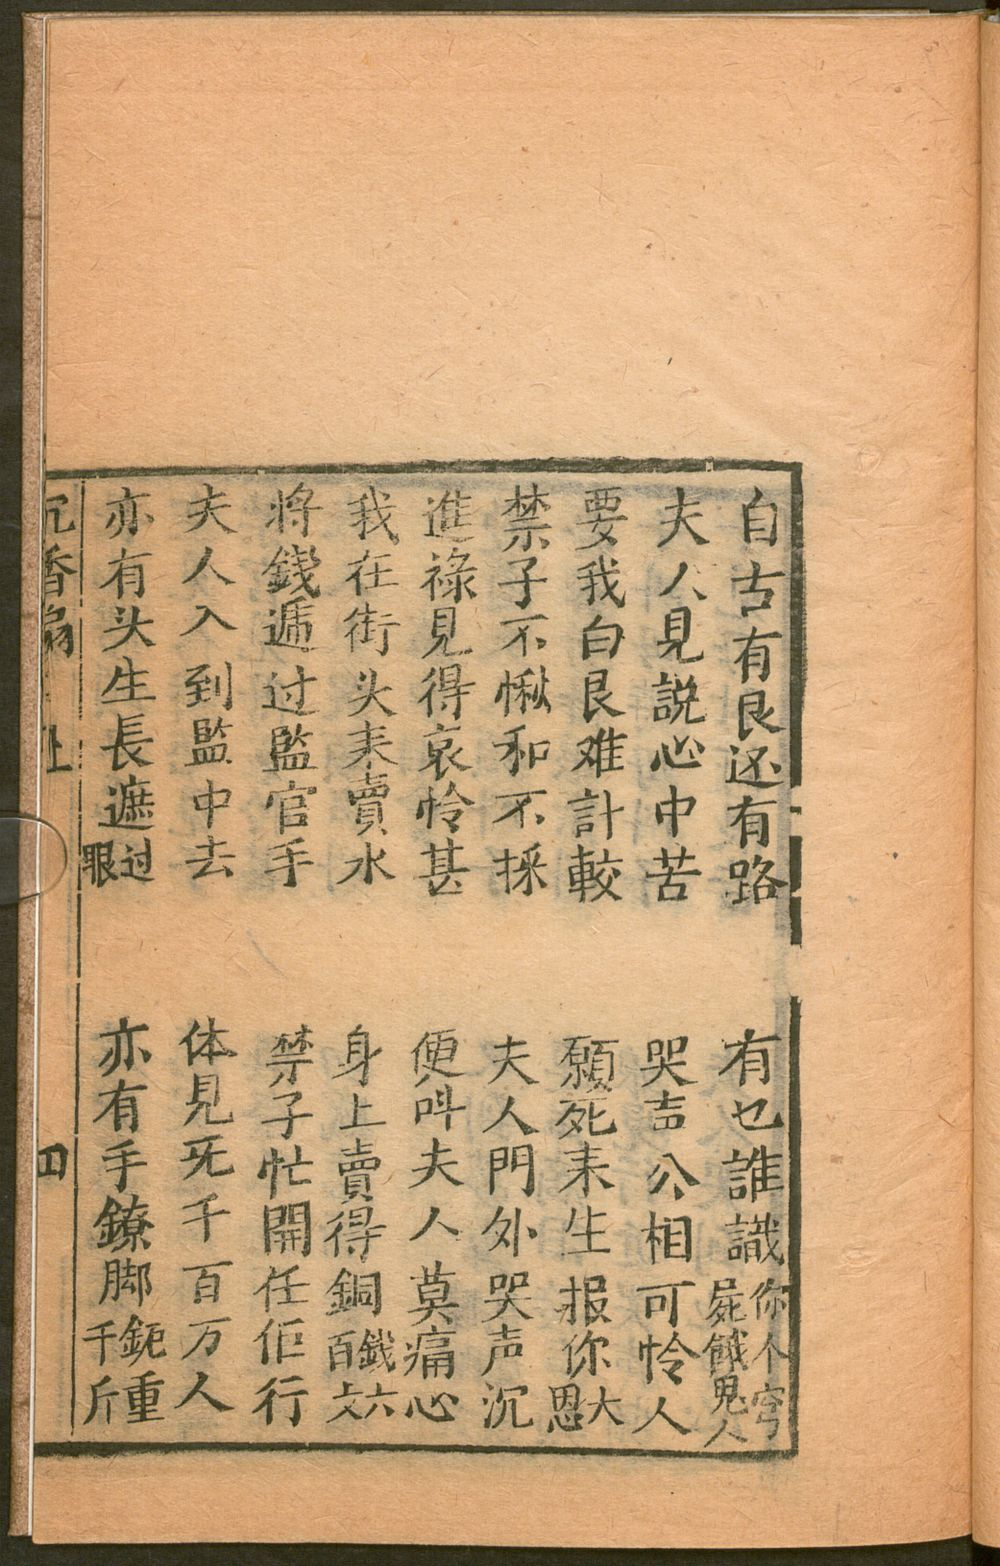 自古有艮还有路　有乜誰識你个穷屍餓鬼人
夫人見説心中苦　哭声公相可怜人
要我白艮难計較　願死耒生报你大恩
禁子不愀和不採　夫人門外哭声沉
進祿見得哀怜甚　便呌夫人莫痛心
我在街头耒賣水　身上賣得銅錢六百文
将錢遞过監官手　禁子忙開任佢行
夫人入到監中去　体見死千百万人
亦有头生長遮过眼　亦有手鐐脚鈪重千斤
沉香扇　上　四